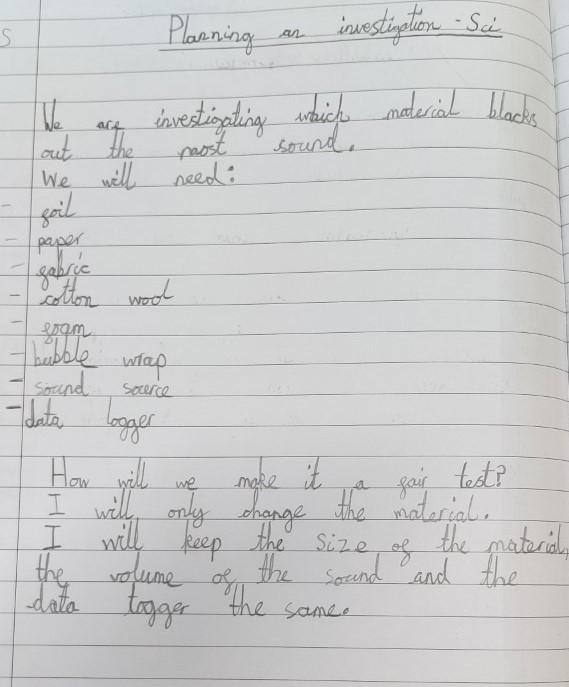 s
Planning an investigation - Sci
We are investigating which material blocks
out the most sound.
We will need:
- foil
- paper
- fabric
- cotton wool
- foam
- bubble wrap
- sound source
- data logger
How will we make it a fair test?
I will only change the material.
I will keep the size of the material,
the volume of the sound and the
data logger the same.